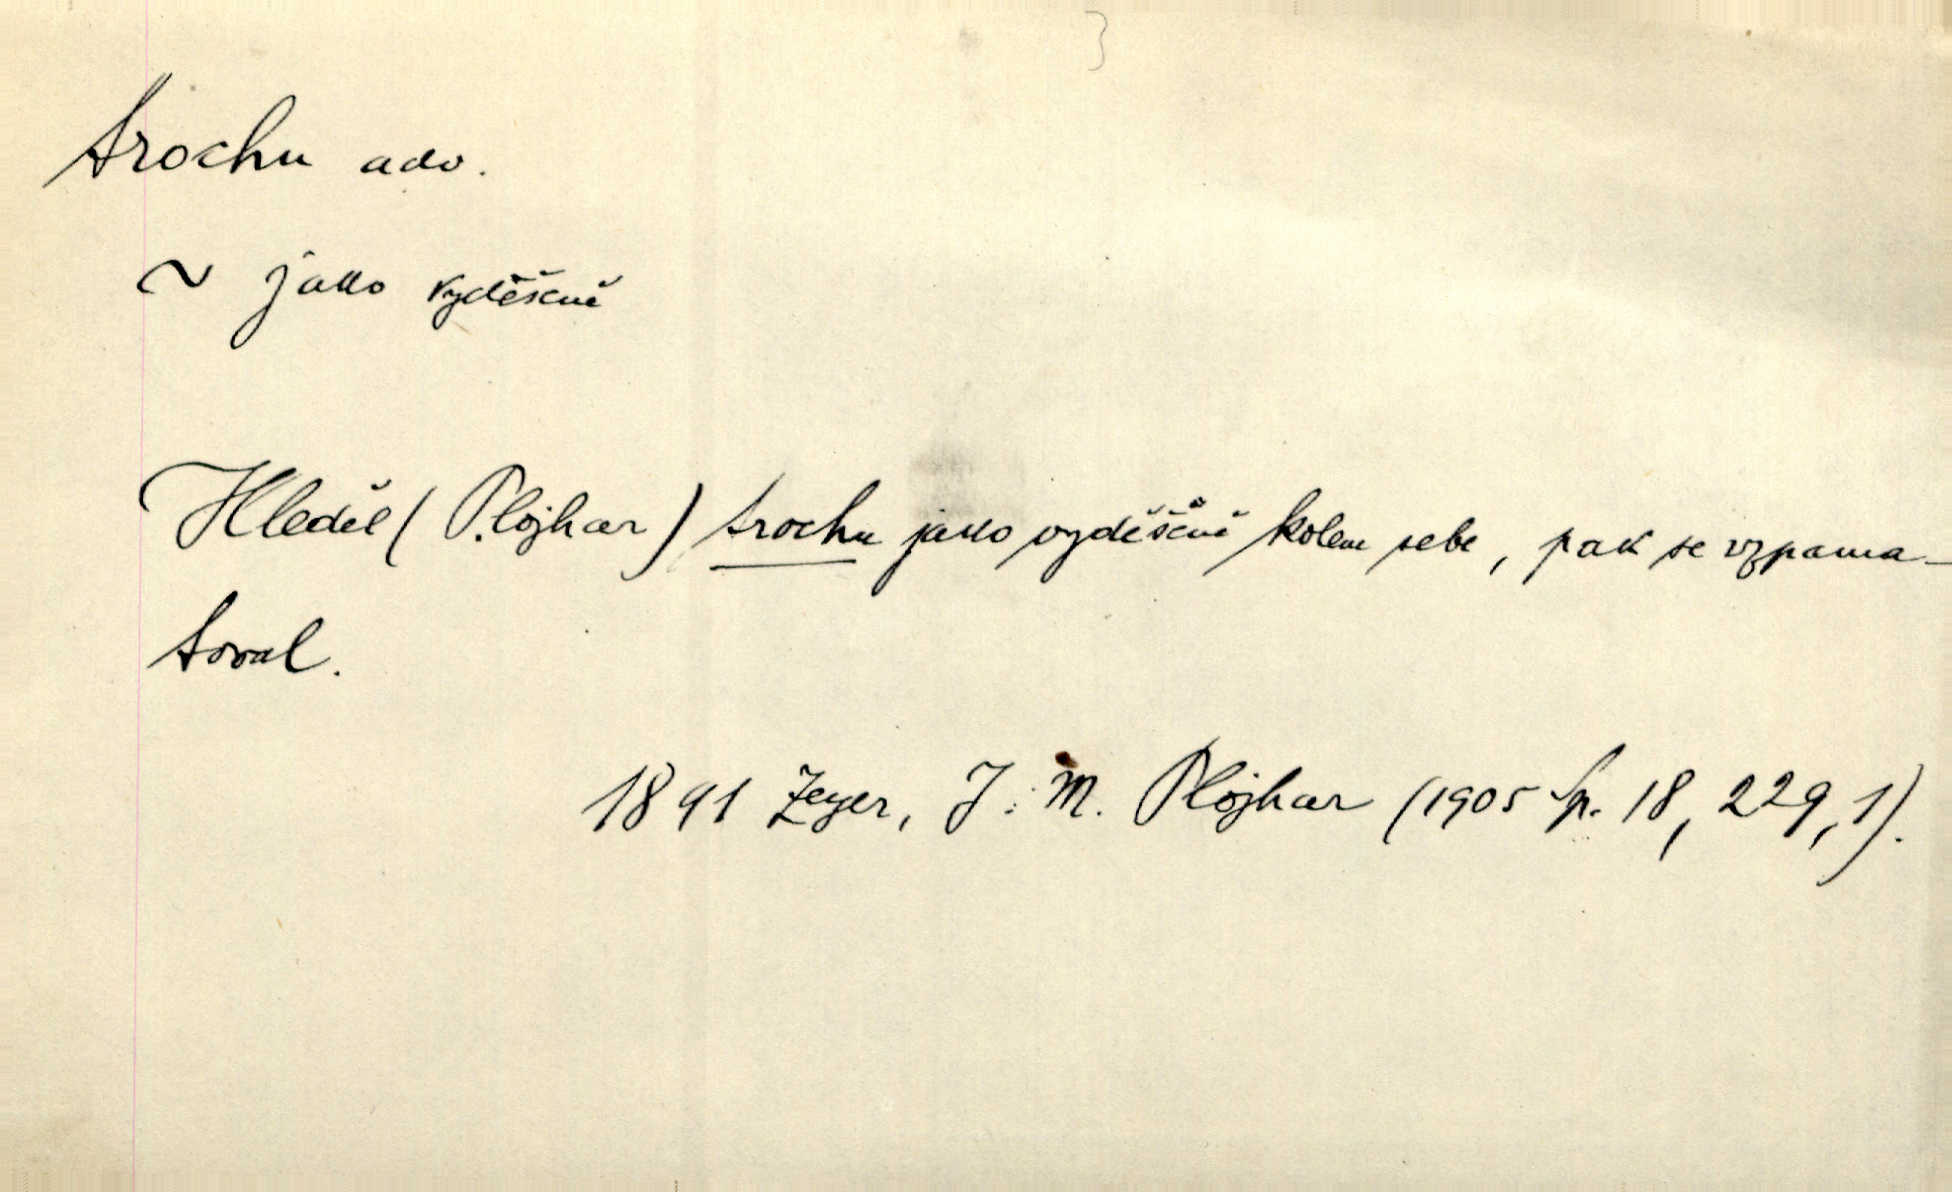 trochu adv.
~ jako vyděšeně
Hleděl (Plojhar) trochu jako vyděšeně kolem sebe, pak se vzpama-
toval.
1891 Zeyer, J. M. Plojhar (1905 Sp. 18, 229, 1).